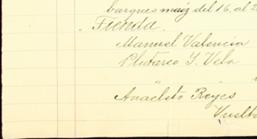 barques maiz del 16. al 2
Tienda.
Manuel Valencia
Plutarco Y. Vela
" "
Anacleto Reyes
Vuelto